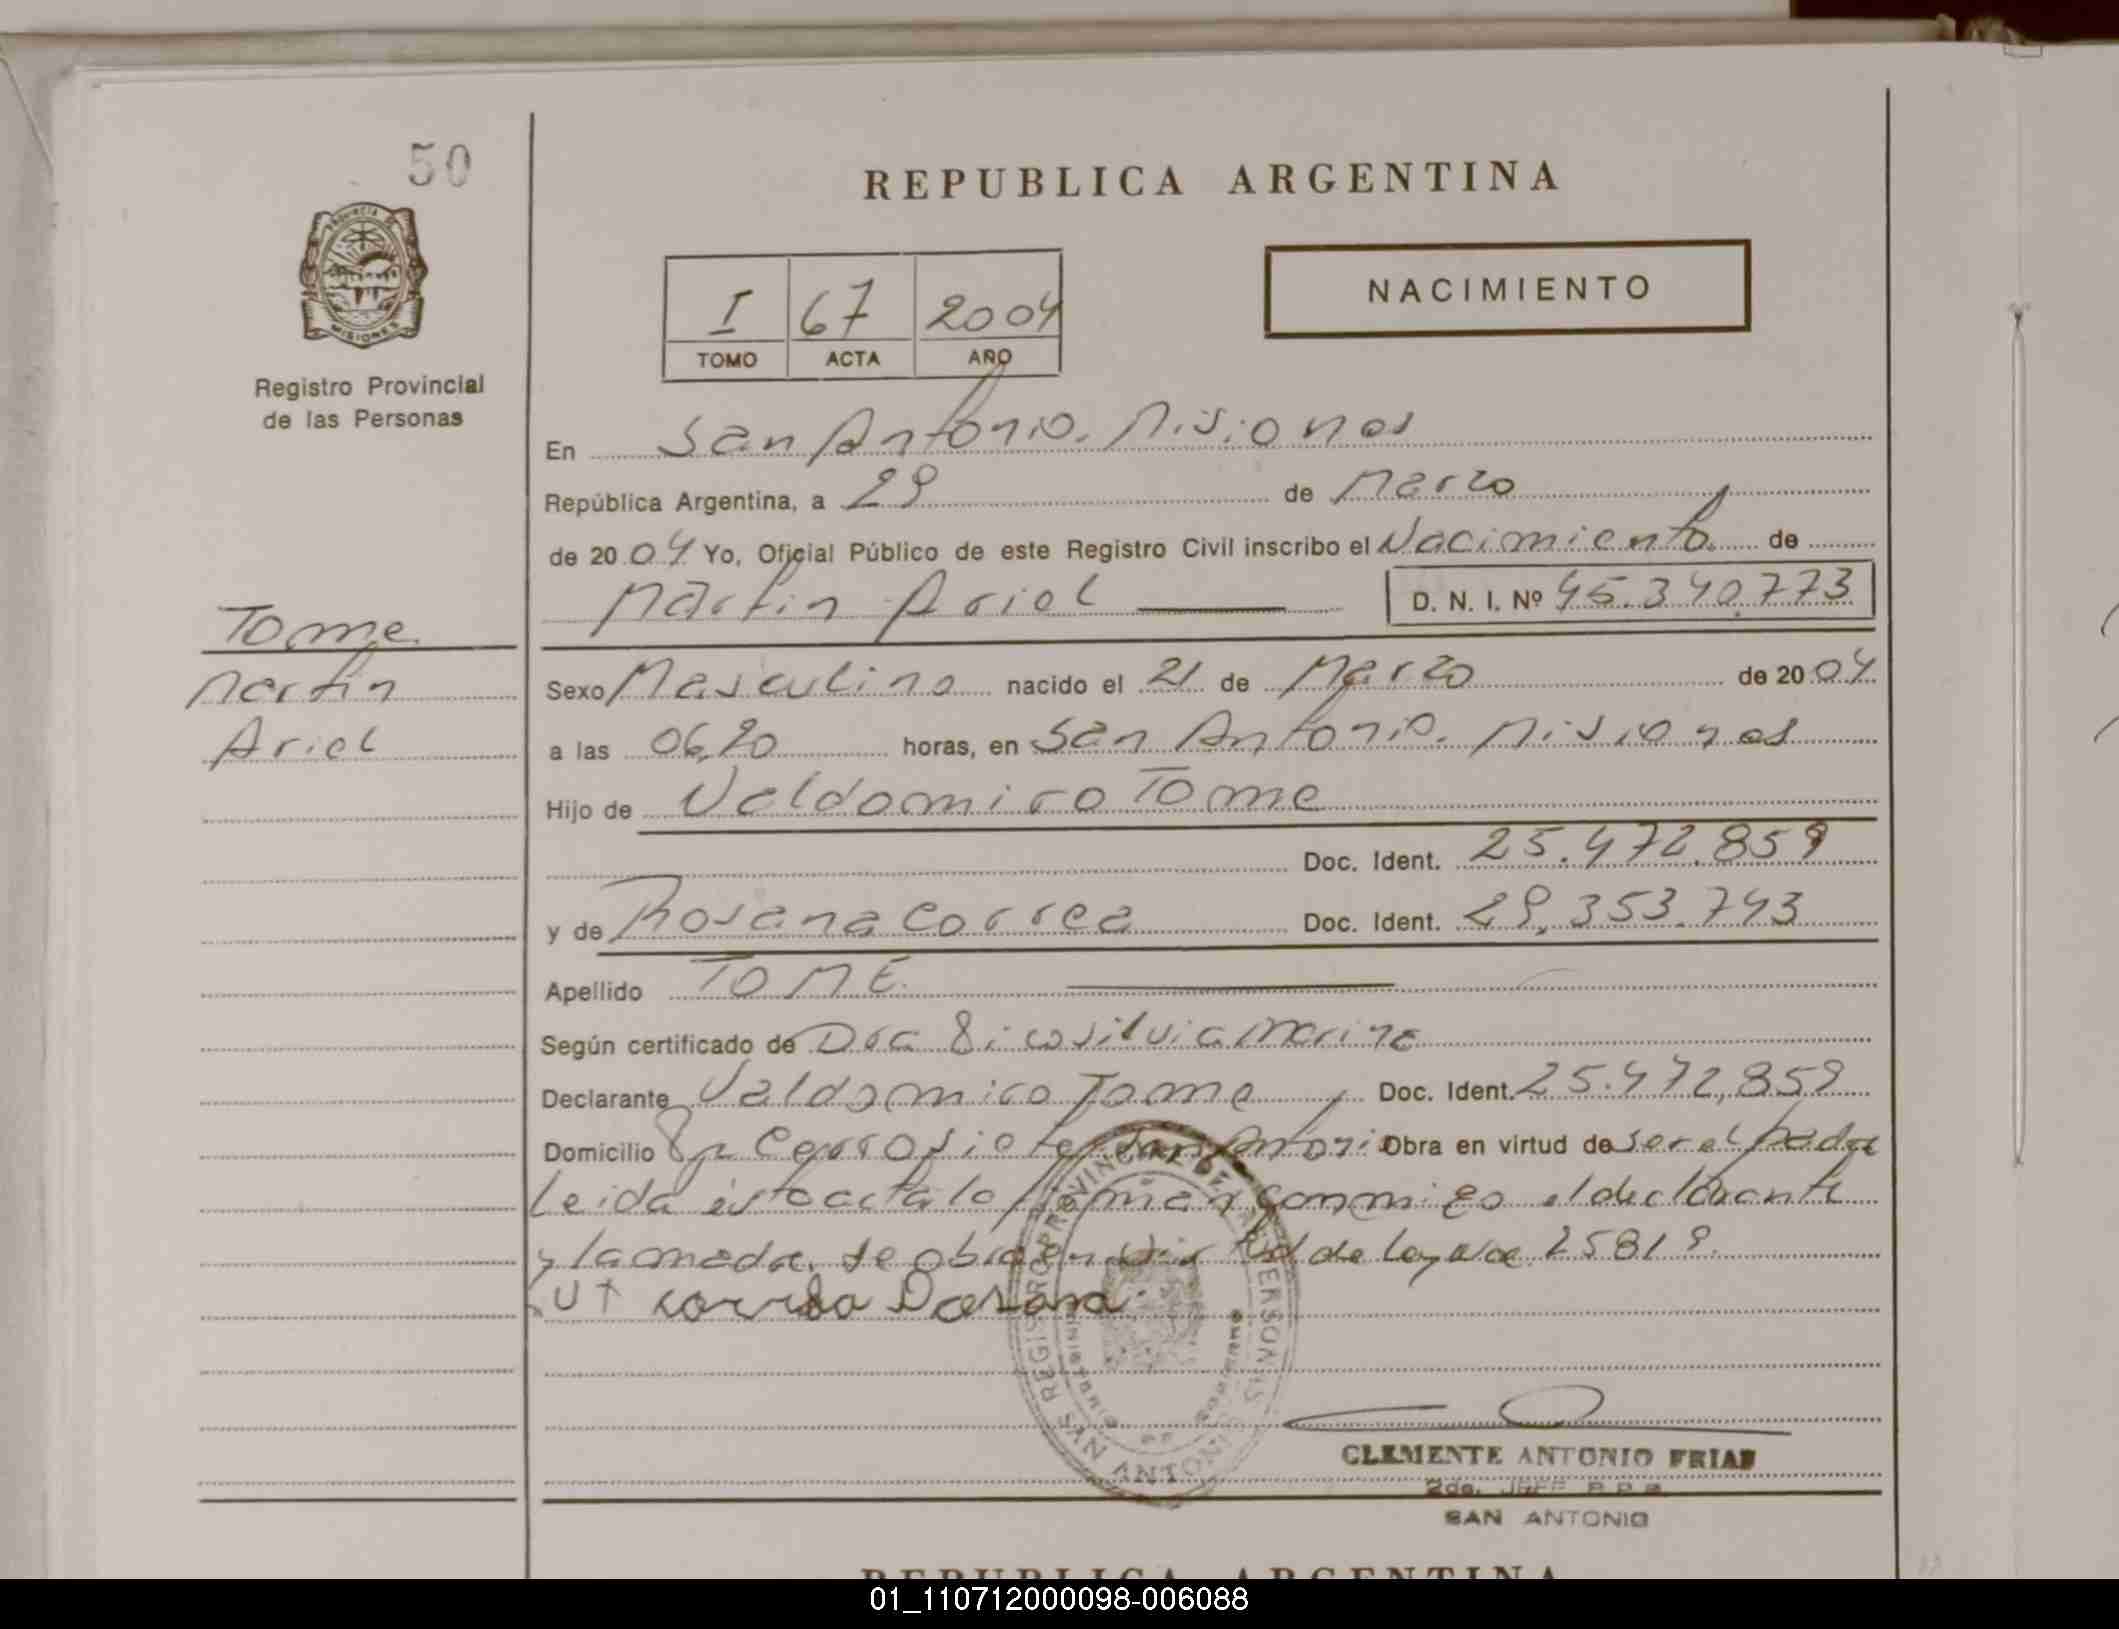 50
REPUBLICA ARGENTINA
PROVINCIA DE
MISIONES
Registro Provincial
de las Personas
NACIMIENTO
I 67 2004
TOMO ACTA AÑO
En San Antonio. Misiones
República Argentina, a 29 de Marzo
de 20 04 Yo, Oficial Público de este Registro Civil inscribo el Nacimiento de
Martin Ariel D. N. I. Nº 45.340.773
Tome
Martin
Ariel
Sexo Masculino nacido el 21 de Marzo de 20 04
a las 06,20 horas, en San Antonio. Misiones
Hijo de Valdomiro Tome
Doc. Ident. 25.472.859
y de Rosana Correa Doc. Ident. 29.353.743
Apellido TOME
Según certificado de Dra Silvia Marina
Declarante Valdomiro Tome Doc. Ident. 25.472.859
Domicilio Cerro Siete San Antonio Obra en virtud de ser el padre
Leida esta acta la firman conmigo el declarante
y la madre. Se obra en virtud de Ley Nº 25819
Correa Rosana
REGISTRO PROVINCIAL DE LAS PERSONAS
SAN ANTONIO
CLEMENTE ANTONIO FRIAS
2do. JEFE R.P.P.
SAN ANTONIO
REPUBLICA ARGENTINA
01_110712000098-006088